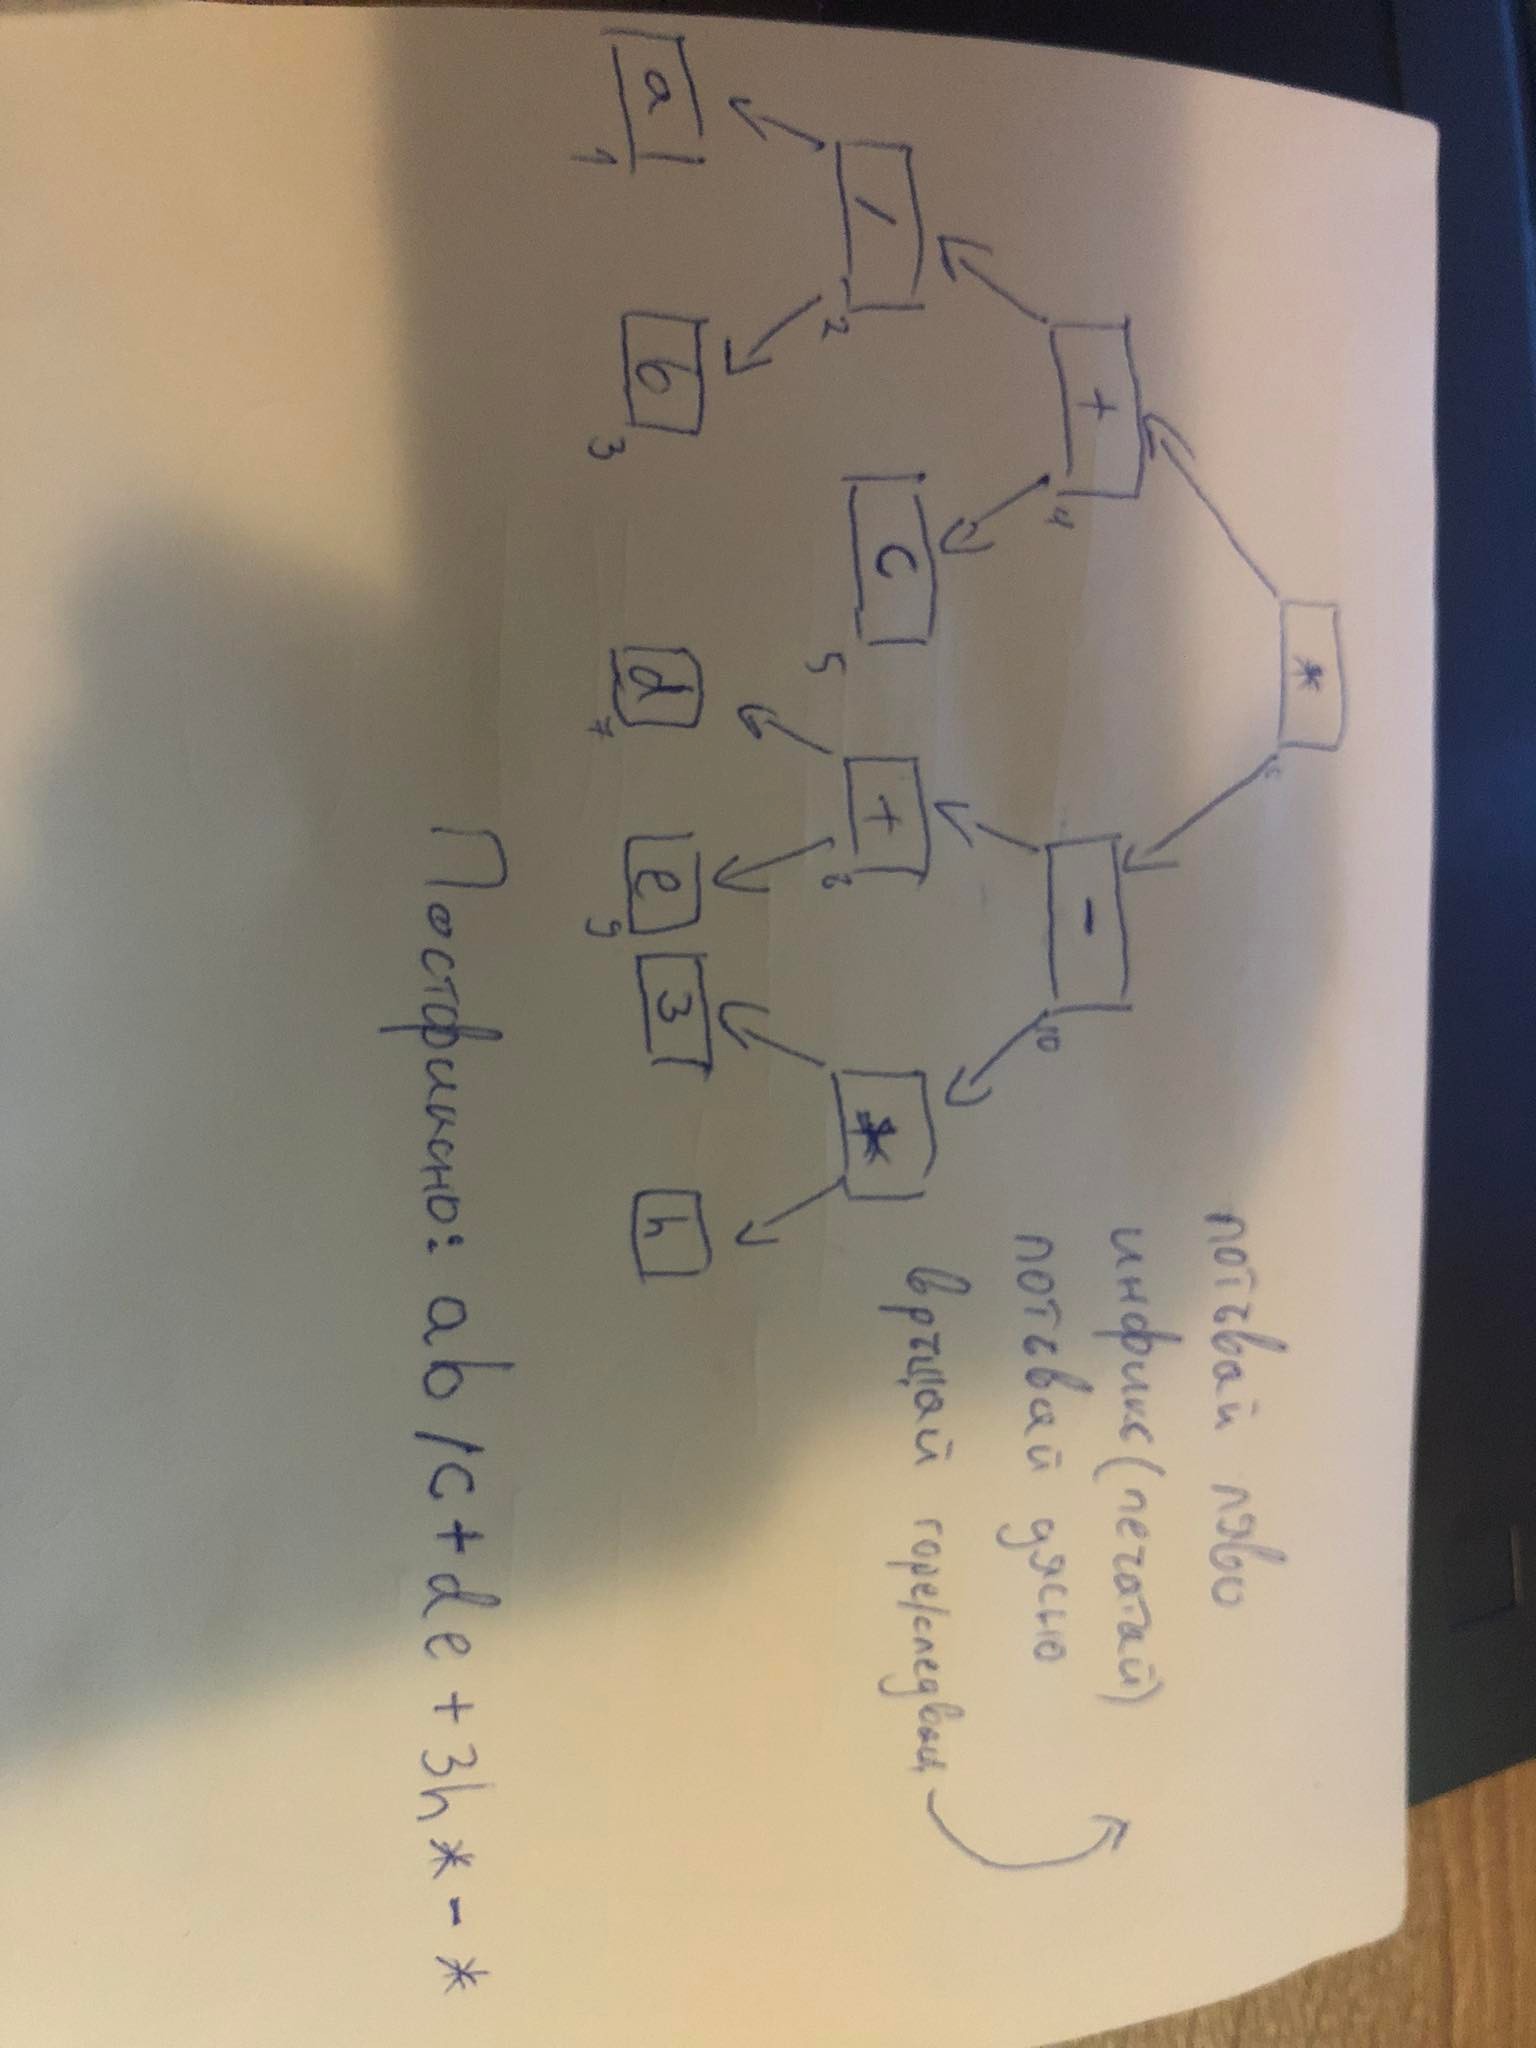 *
6
+
4
-
10
/
2
c
5
+
8
*
a
1
b
3
d
7
e
9
3
h
потъвай ляво
инфикс (печатай)
потъвай дясно
връщай горе/следващ
Постфиксно: ab/c+de+3h*-*